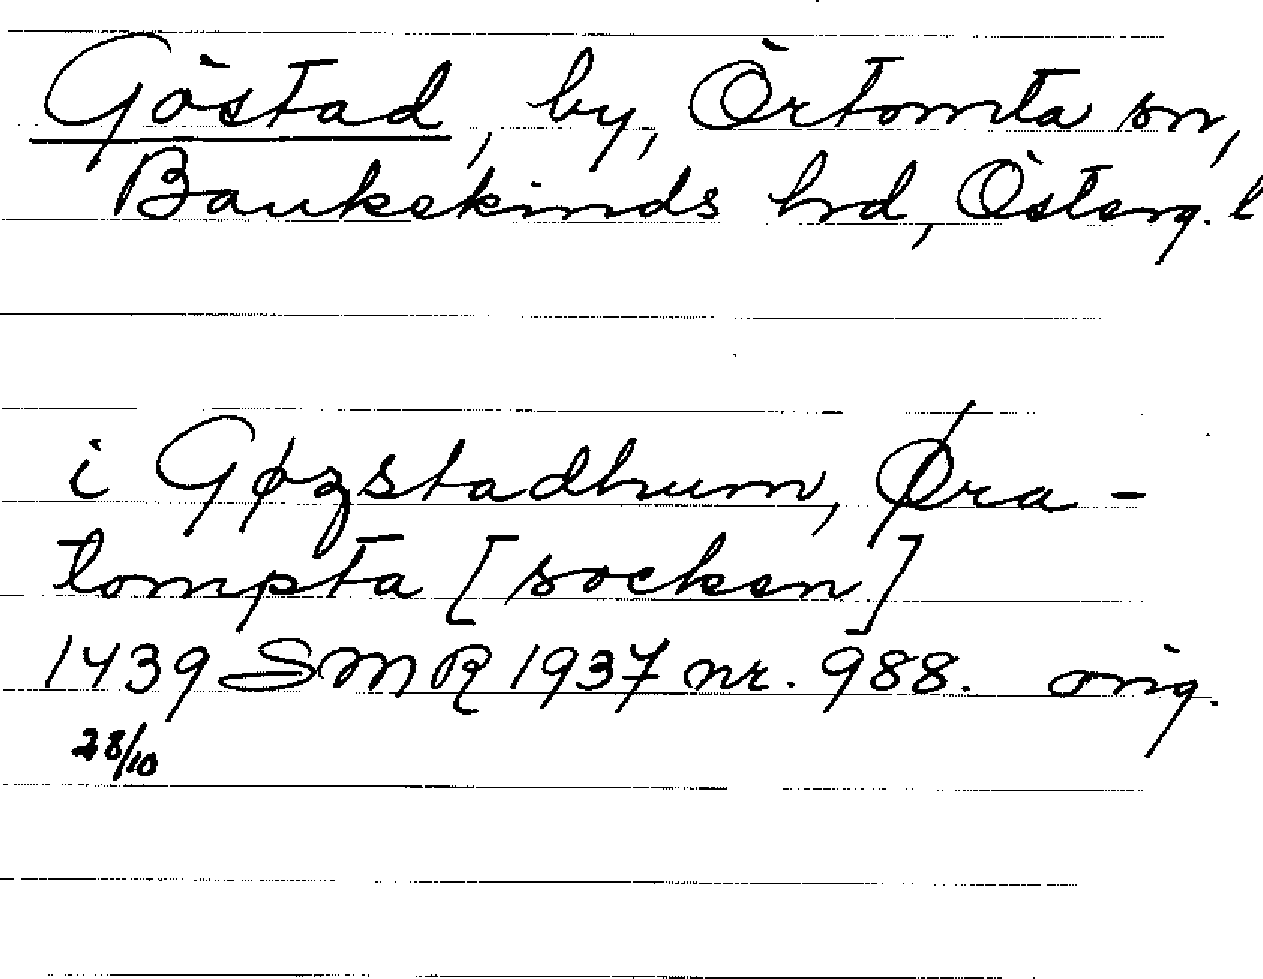 Göstad, by, Örtomta sn,
Bankekinds hrd, Österg. l
i Gøzstadhum, Øra-
tompta [socken]
1439 SMR 1937 nr. 988. orig.
28/10